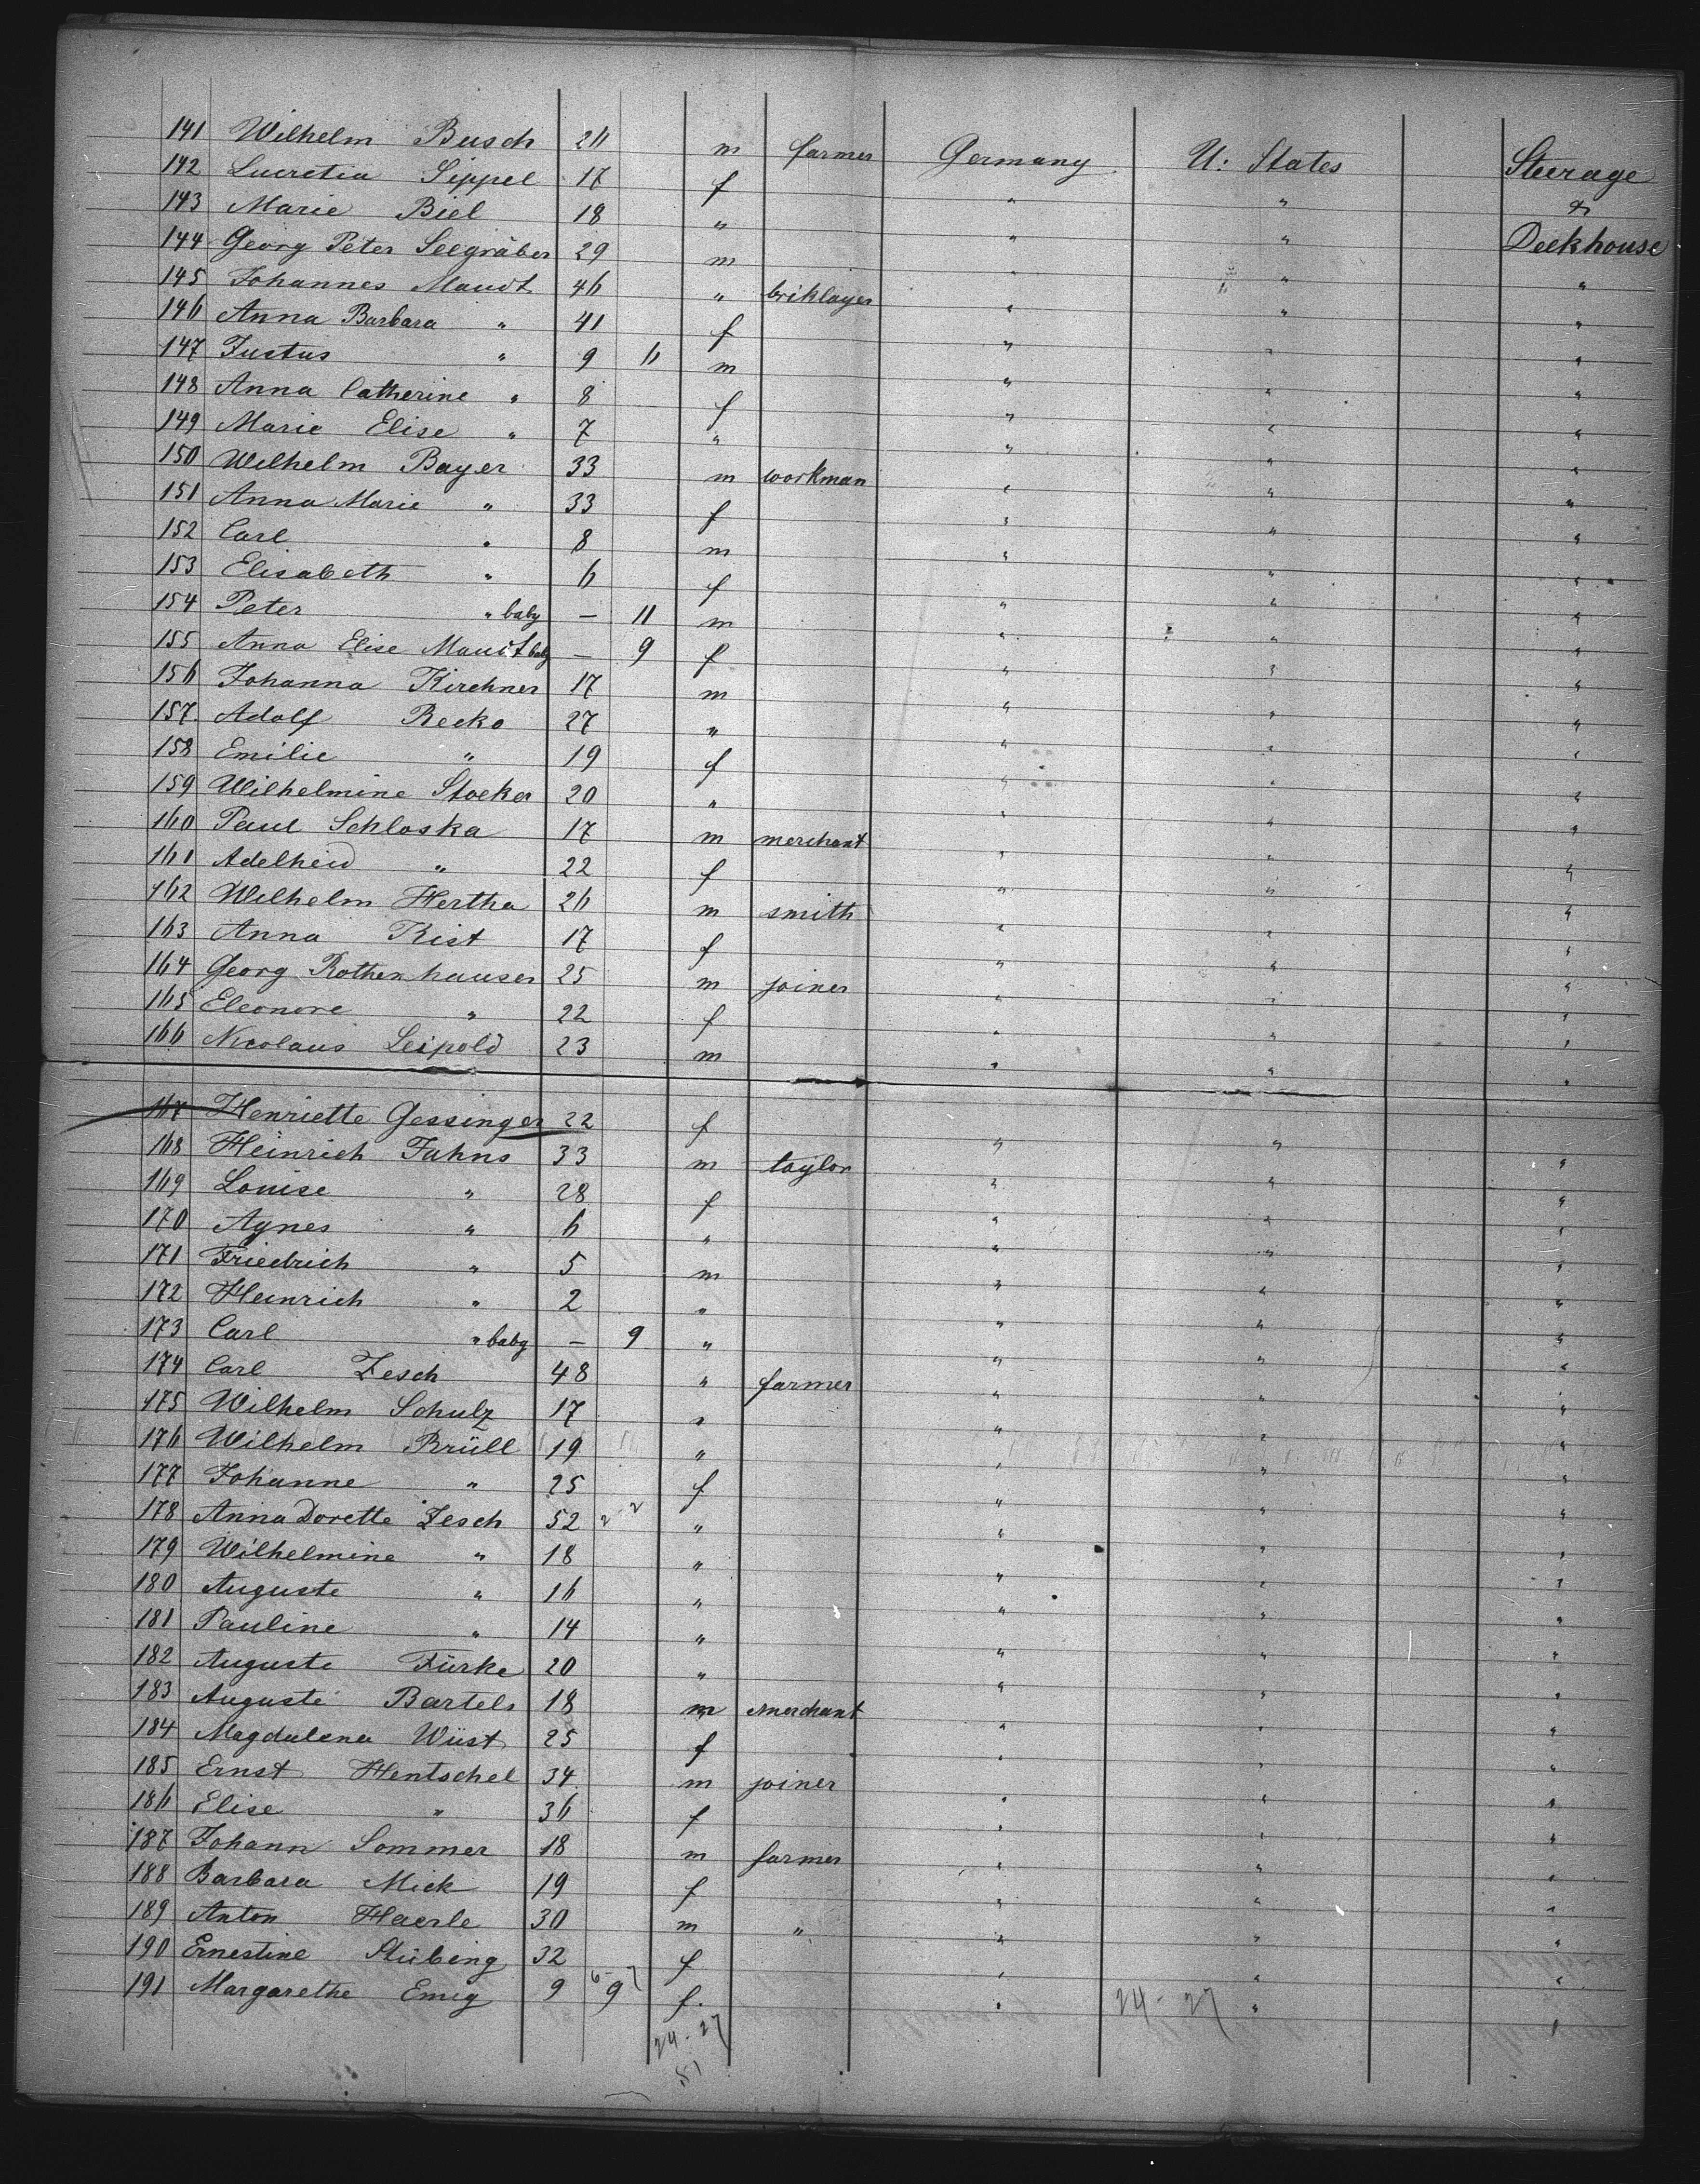 141 Wilhelm Busch 26 m farmer Germany U: States Steerage
142 Lucretia Sippel 17 f " " &
143 Marie Biel 18 " " " Deckhouse
144 Georg Peter Seegräber 29 m " " "
145 Johannes Maudt 46 " briklayer " " "
146 Anna Barbara " 41 f " " "
147 Justus " 9 6 m " " "
148 Anna Catherine " 8 f " " "
149 Marie Elise " 7 " " " "
150 Wilhelm Bayer 33 m workman " " "
151 Anna Marie " 33 f " " "
152 Carl " 8 m " " "
153 Elisabeth " 6 f " " "
154 Peter " baby — 11 m " " "
155 Anna Elise Maudt baby — 9 f " " "
156 Johanna Kirchner 17 m " " "
157 Adolf Recko 27 " " " "
158 Emilie " 19 f " " "
159 Wilhelmine Stocker 20 " " " "
160 Paul Schloska 17 m merchant " " "
161 Adelheid " 22 f " " "
162 Wilhelm Hertha 26 m smith " " "
163 Anna Rist 17 f " " "
164 Georg Rothenhauser 25 m joiner " " "
165 Eleonore " 22 f " " "
166 Nicolaus Leipold 23 m " " "
167 Henriette Gessinger 22 f " " "
168 Heinrich Jahns 33 m taylor " " "
169 Louise " 28 f " " "
170 Agnes " 6 " " " "
171 Friedrich " 5 m " " "
172 Heinrich " 2 " " " "
173 Carl " baby — 9 " " " "
174 Carl Zesch 48 " farmer " " "
175 Wilhelm Schulz 17 " " " "
176 Wilhelm Brüll 19 " " " "
177 Johanne " 25 f " " "
178 Anna Dorette Zesch 52 " " " "
179 Wilhelmine " 18 " " " "
180 Auguste " 16 " " " "
181 Pauline " 14 " " " "
182 Auguste Fürke 20 " " " "
183 Auguste Bartels 18 m merchant " " "
184 Magdalena Wüst 25 f " " "
185 Ernst Hentschel 34 m joiner " " "
186 Elise " 36 f " " "
187 Johann Sommer 18 m farmer " " "
188 Barbara Mick 19 f " " "
189 Anton Haerle 30 m " " " "
190 Ernestine Stübing 32 f " " "
191 Margarethe Emig 9 9 f. " " "
24-27 24-27
51